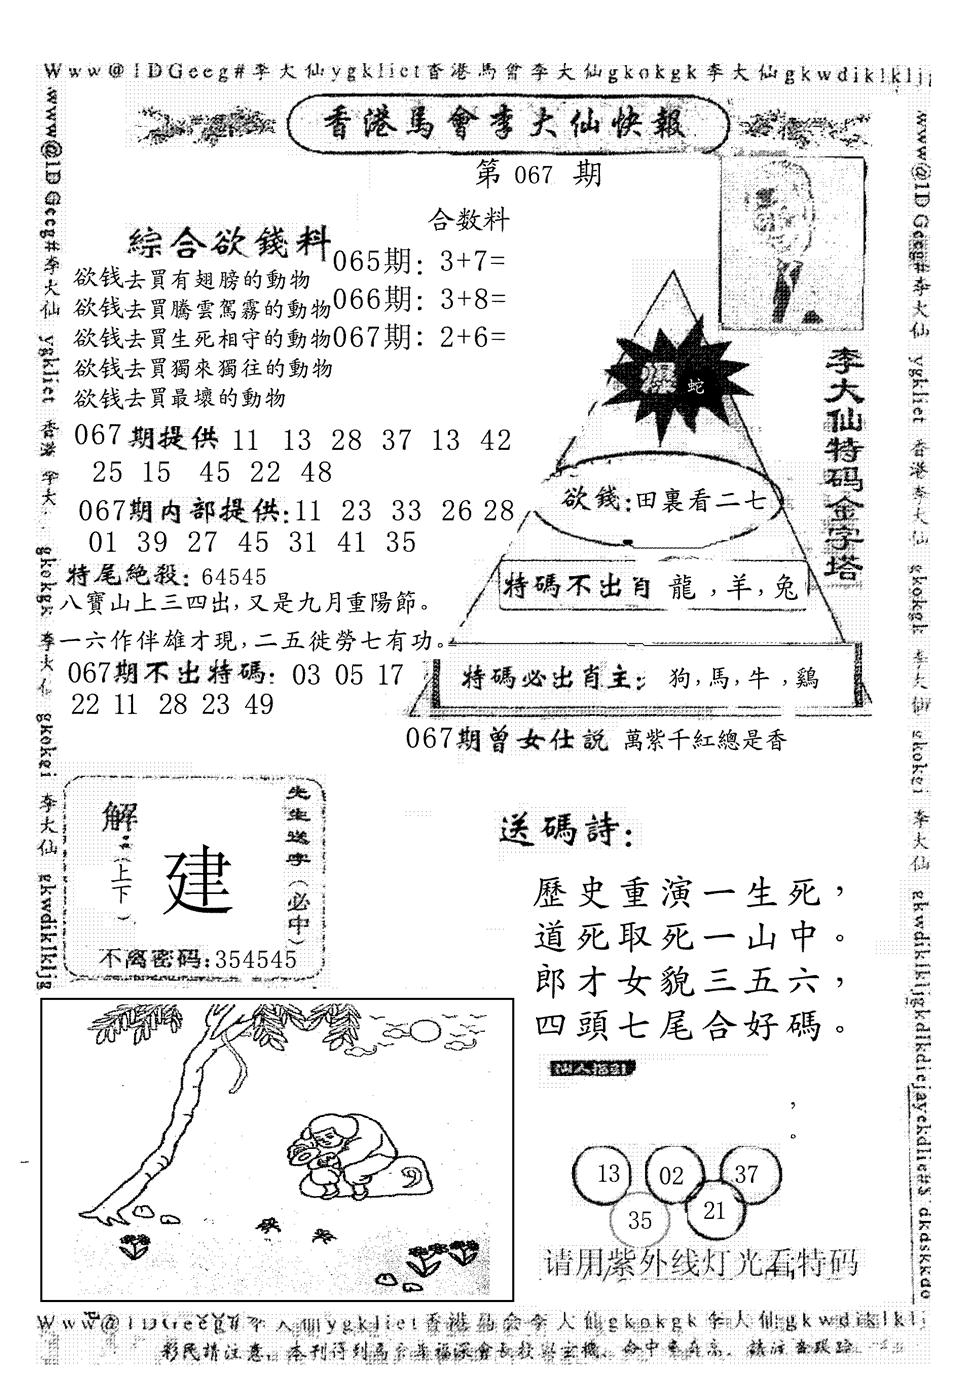 Www@1DGeeg#李大仙ygkliet香港馬會李大仙gkokgk李大仙gkwdiklkljg
香港馬會李大仙快報
第 067 期
合数料
綜合欲錢料
欲钱去買有翅膀的動物
欲钱去買騰雲駕霧的動物
欲钱去買生死相守的動物
欲钱去買獨來獨往的動物
欲钱去買最壞的動物
065期: 3+7=
066期: 3+8=
067期: 2+6=
067期提供 11 13 28 37 13 42
25 15 45 22 48
067期内部提供:11 23 33 26 28
01 39 27 45 31 41 35
特尾絶殺: 64545
八寶山上三四出,又是九月重陽節。
一六作伴雄才現,二五徙勞七有功。
067期不出特碼: 03 05 17
22 11 28 23 49
爆 蛇
欲錢:田裏看二七
特碼不出肖 龍,羊,兔
特碼必出肖主: 狗,馬,牛,鷄
李大仙特码金字塔
067期曾女仕説 萬紫千紅總是香
解
(上下)
建
先生送字(必中)
不离密码:354545
送碼詩:
歷史重演一生死,
道死取死一山中。
郎才女貌三五六,
四頭七尾合好碼。
仙人指打
,
。
13 02 37
35 21
请用紫外线灯光看特码
Www@1DGeeg#李大仙ygkliet香港馬会李大仙gkokgk李大仙gkwdiklklj
彩民請注意,本刊得到馬